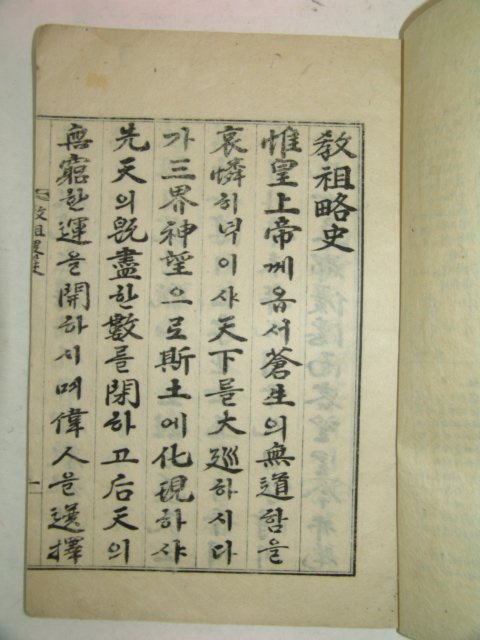 教祖略史
惟皇上帝께옵서蒼生의無道함을
哀憐히녁이샤天下를大巡하시다
가三界神望으로斯土에化現하샤
先天의旣盡한數를閉하고后天의
無窮한運을開하시며偉人을選擇
教祖畧史
一